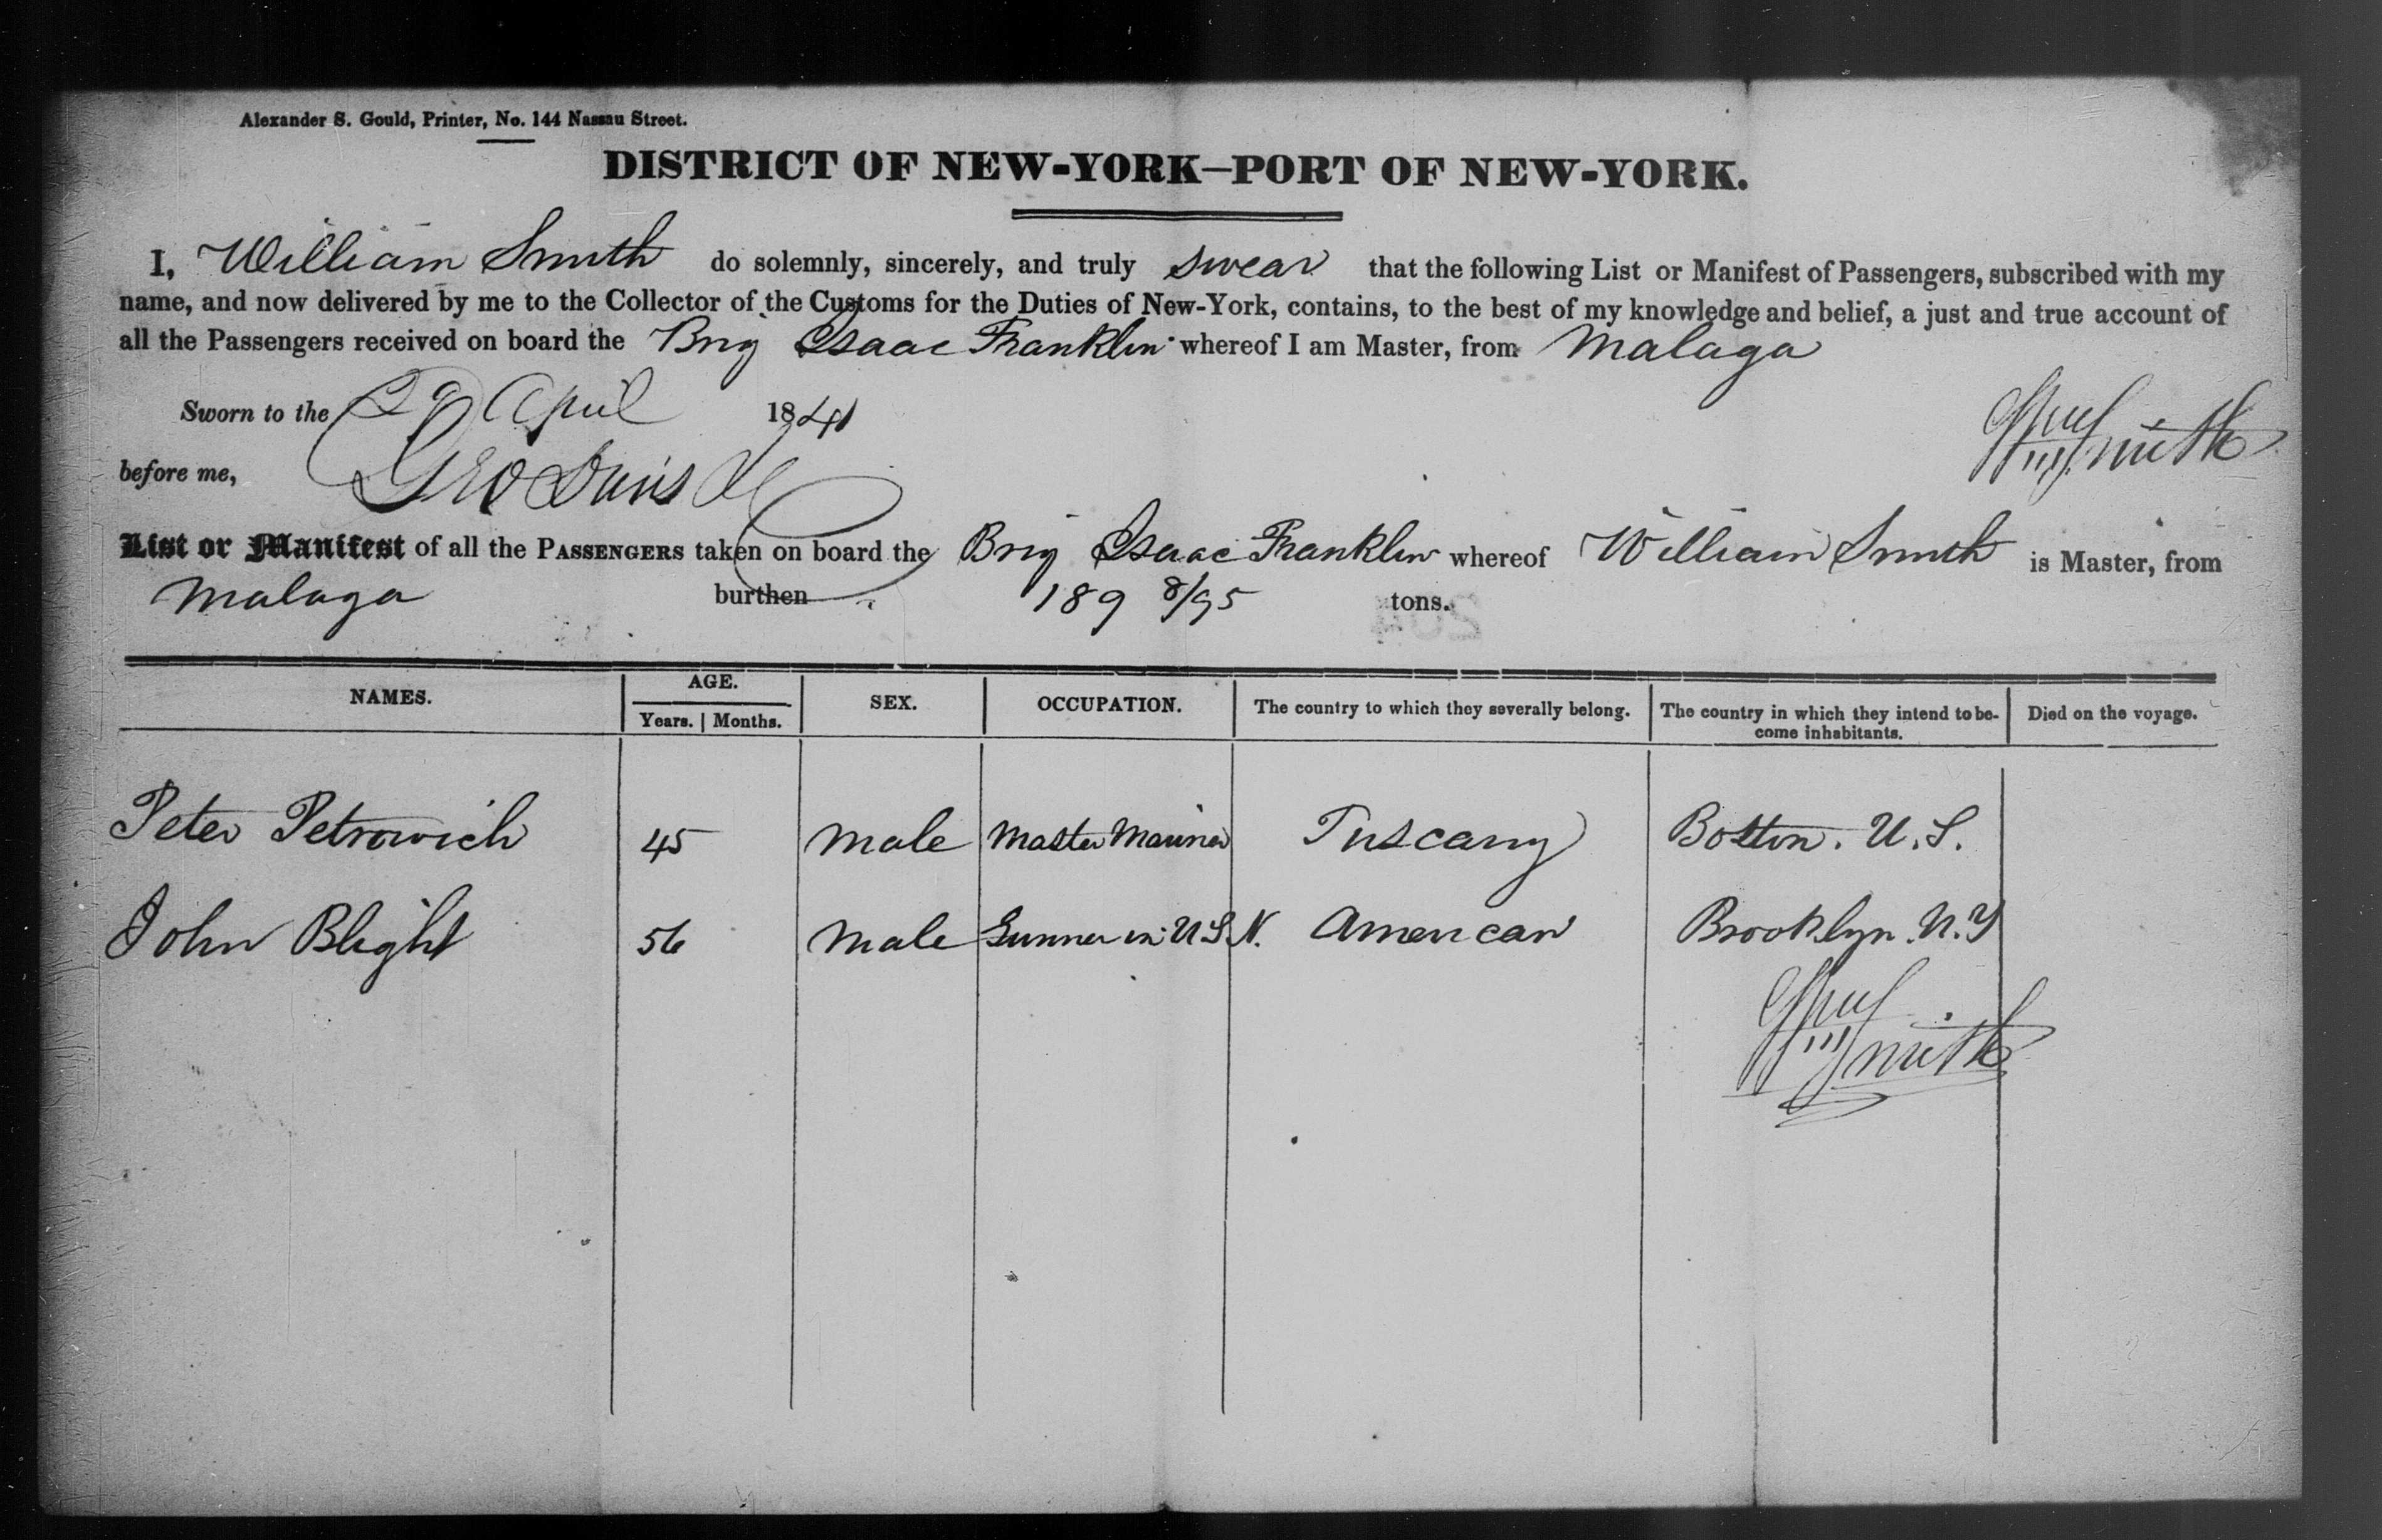 Alexander S. Gould, Printer, No. 144 Nassau Street.
DISTRICT OF NEW-YORK—PORT OF NEW-YORK.
I, William Smith do solemnly, sincerely, and truly swear that the following List or Manifest of Passengers, subscribed with my
name, and now delivered by me to the Collector of the Customs for the Duties of New-York, contains, to the best of my knowledge and belief, a just and true account of
all the Passengers received on board the Brig Isaac Franklin whereof I am Master, from Malaga
Sworn to the 29 April 1841
before me, Geo Davis
Smith
List or Manifest of all the PASSENGERS taken on board the Brig Isaac Franklin whereof William Smith is Master, from
Malaga burthen 189 8/95 tons.
NAMES. AGE. SEX. OCCUPATION. The country to which they severally belong. The country in which they intend to be- Died on the voyage.
Years. Months. come inhabitants.
Peter Petrowich 45 male Master Mariner Tuscany Boston. U.S.
John Blight 56 male Gunner in U S N. American Brooklyn N.Y
Smith